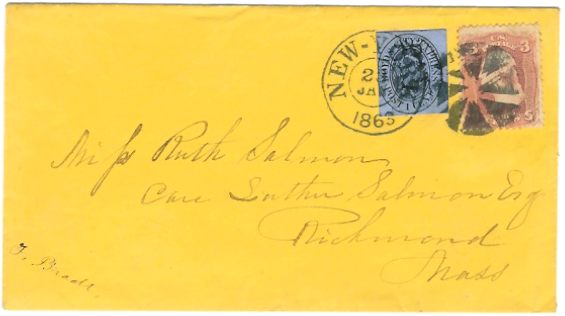 NEW-Y
2
JA
1865
U.S. POSTAGE
3
Miss Ruth Salmon
Care Luther Salmon Esq
Richmond
Mass